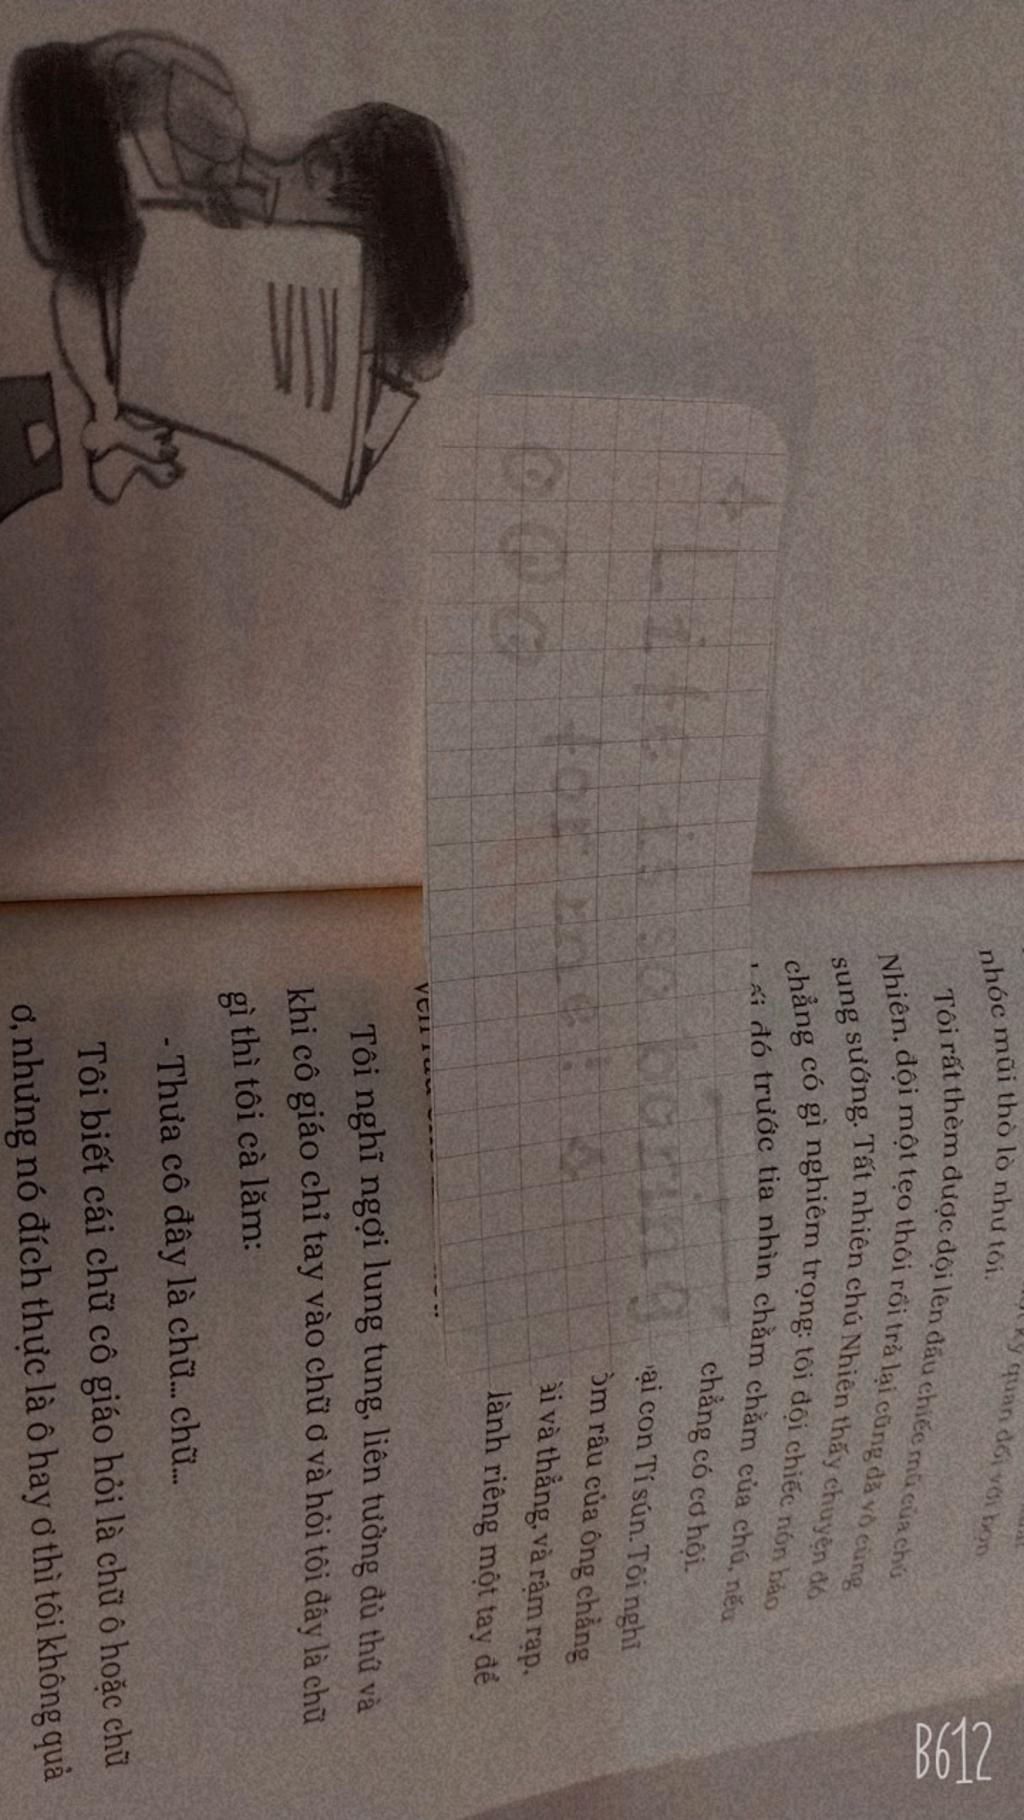 nhóc mũi thò lò như tôi.
Tôi rất thèm được đội lên đầu chiếc mũ của chú
Nhiên, đội một tẹo thôi rồi trả lại cũng đã vô cùng
sung sướng. Tất nhiên chú Nhiên thấy chuyện đó
chẳng có gì nghiêm trọng: tôi đội chiếc nón bảo
đó trước tia nhìn chằm chằm của chú, nếu
chẳng có cơ hội.
con Tí sún. Tôi nghĩ
râu của ông chẳng
và thẳng, và rậm rạp.
lành riêng một tay để
Life is so boring
for me!
Tôi nghĩ ngợi lung tung, liên tưởng đủ thứ và
khi cô giáo chỉ tay vào chữ ơ và hỏi tôi đây là chữ
gì thì tôi cà lăm:
- Thưa cô đây là chữ... chữ...
Tôi biết cái chữ cô giáo hỏi là chữ ô hoặc chữ
ơ, nhưng nó đích thực là ô hay ơ thì tôi không quả
B612